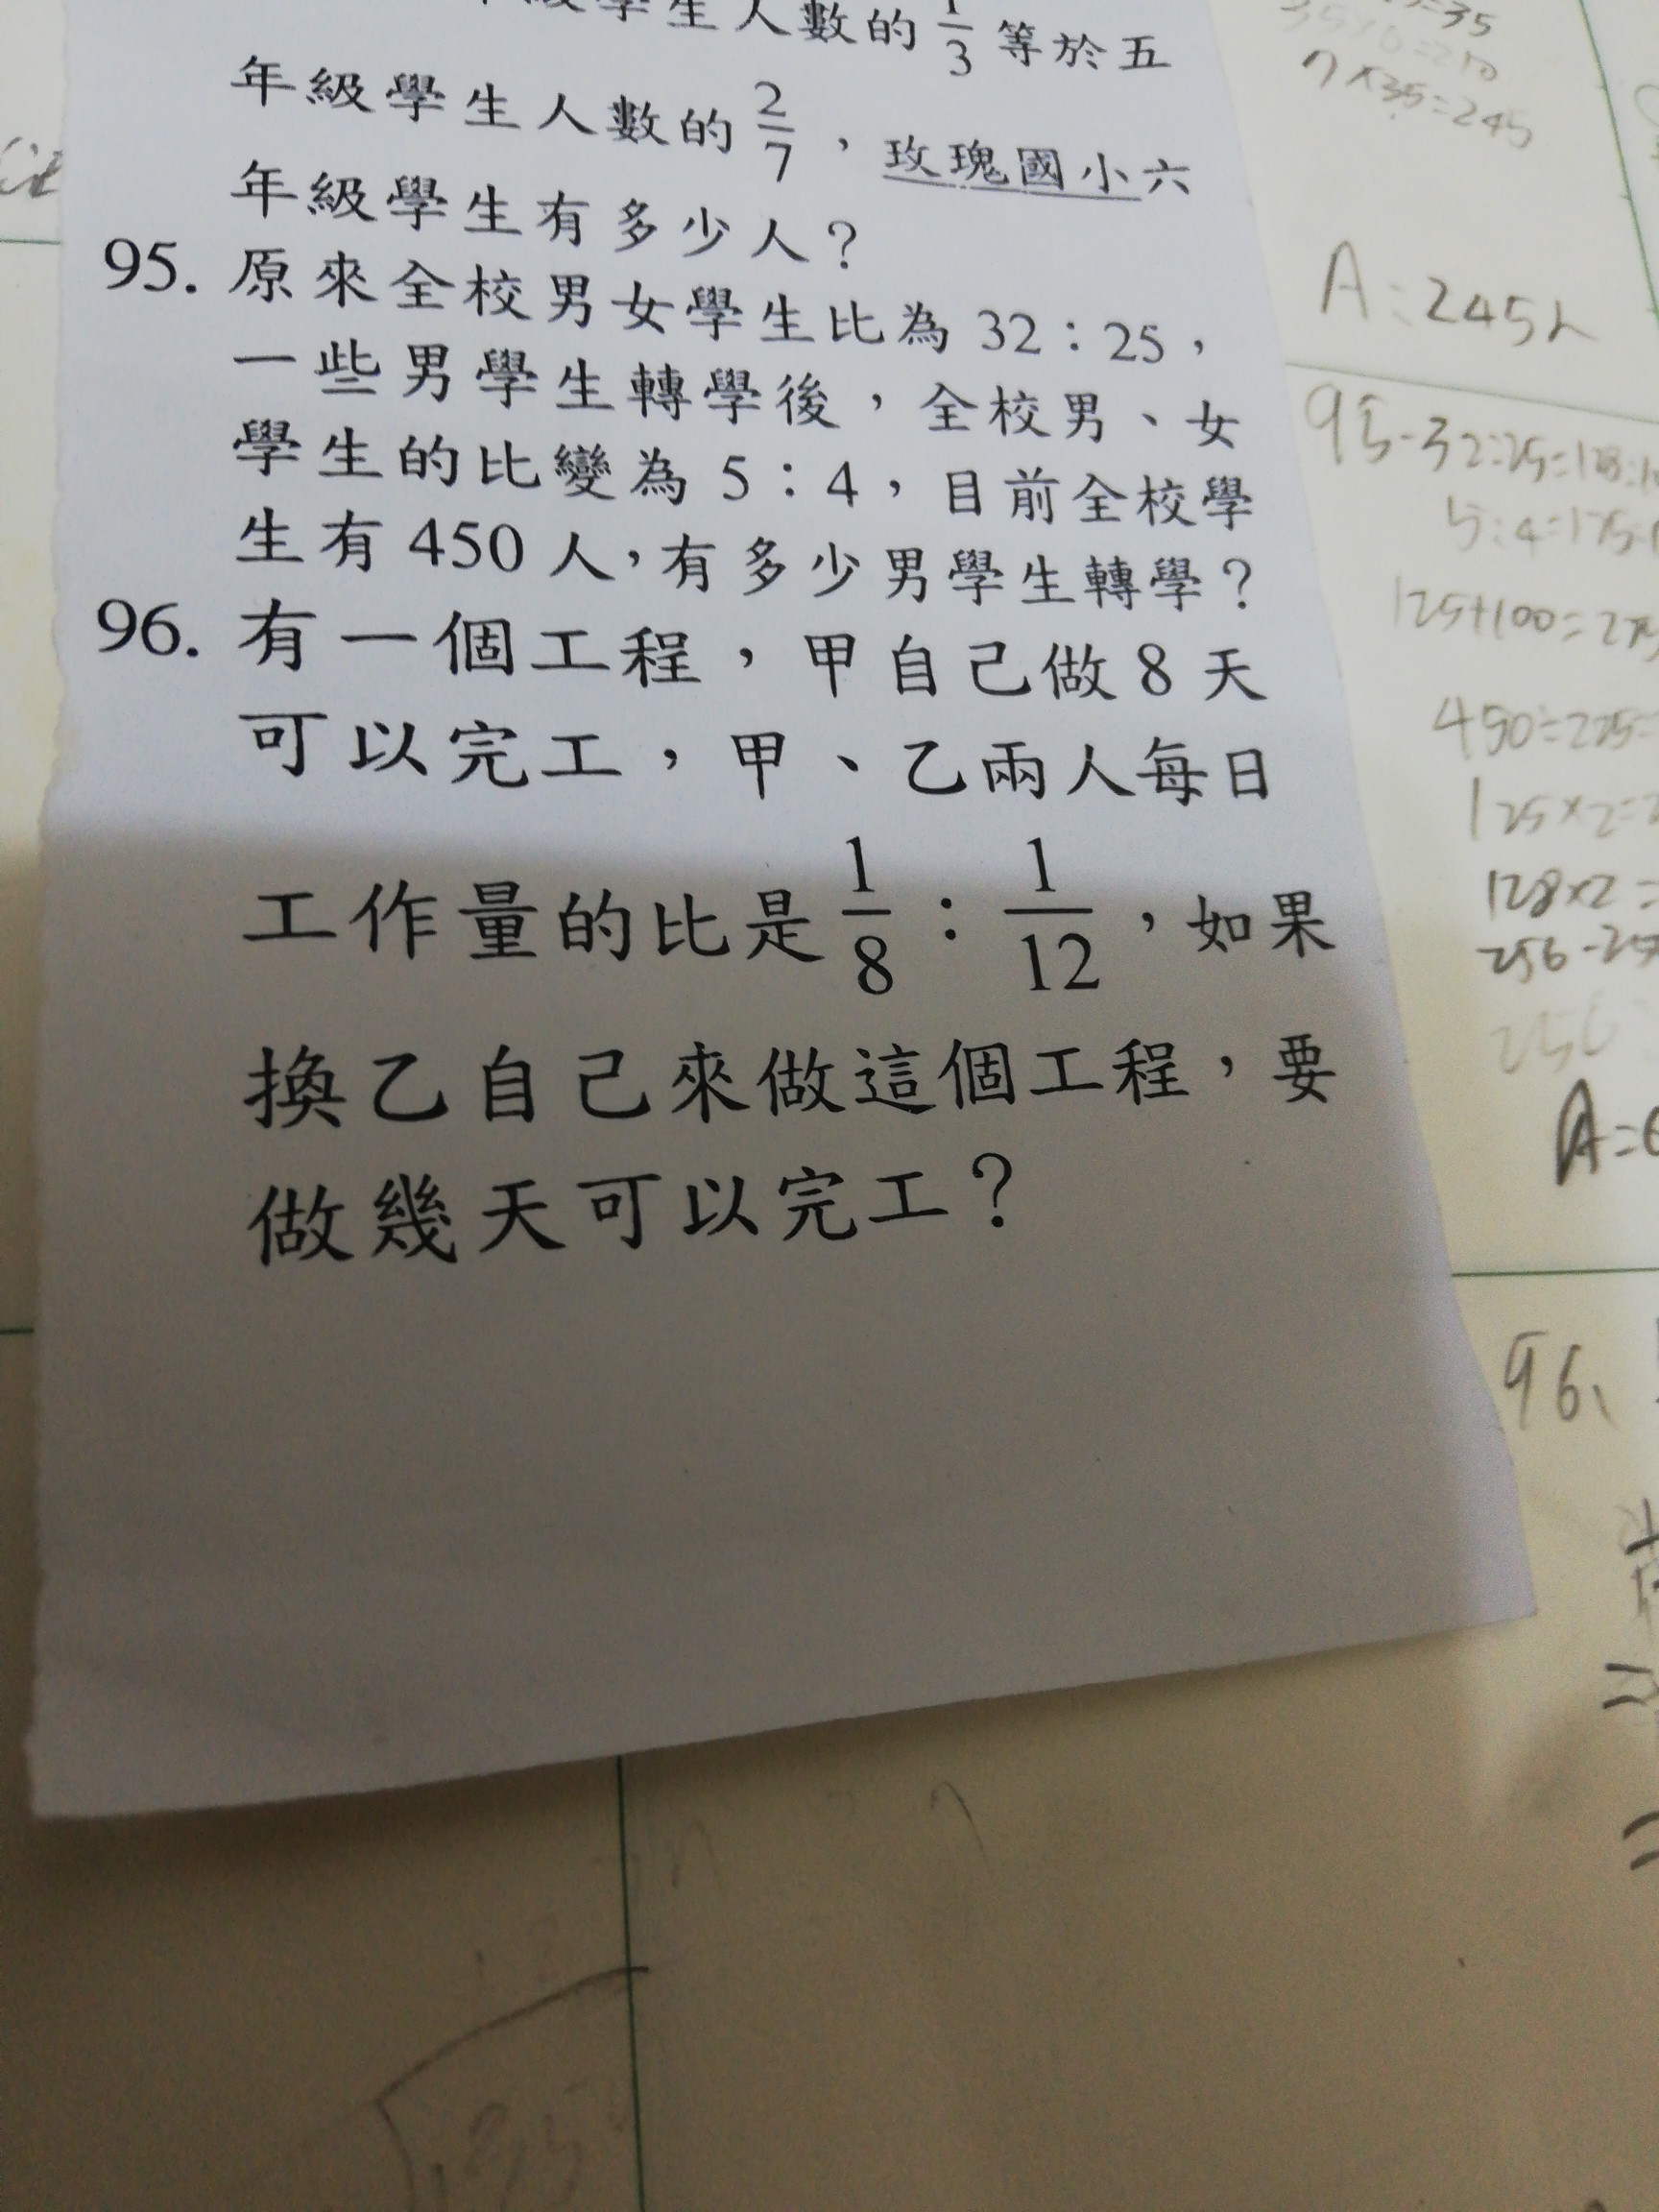 學生人數的 1/3 等於五
年級學生人數的 2/7，玫瑰國小六
年級學生有多少人？
95. 原來全校男女學生比為 32：25，
一些男學生轉學後，全校男、女
學生的比變為 5：4，目前全校學
生有 450 人，有多少男學生轉學？
96. 有一個工程，甲自己做 8 天
可以完工，甲、乙兩人每日
工作量的比是 1/8：1/12，如果
換乙自己來做這個工程，要
做幾天可以完工？
=35
35×6=210
7×35=245
A:245人
95-32:25=128:1
5:4=125:1
125+100=225
450÷225=
125×2=2
128×2=
256-25
256
A=6
96、